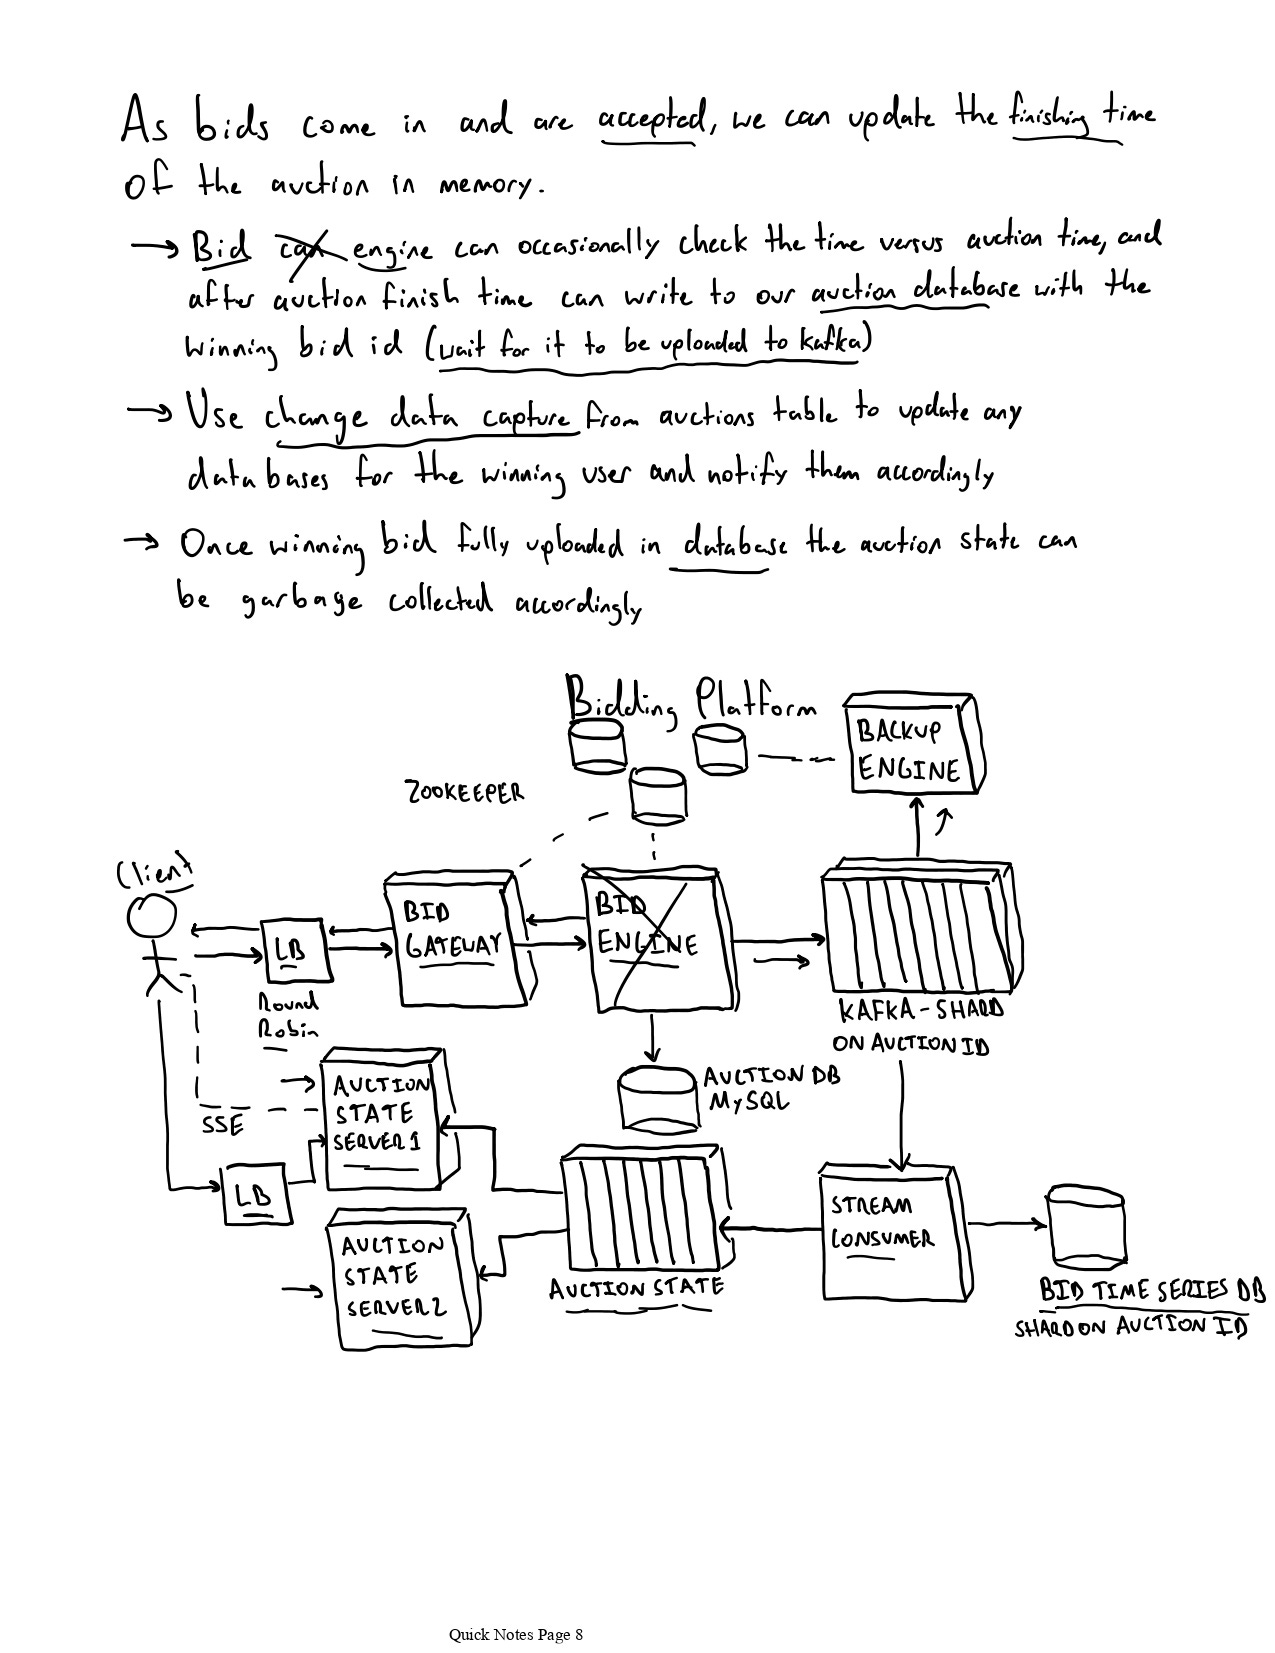 As bids come in and are accepted, we can update the finishing time
of the auction in memory.
→ Bid can engine can occasionally check the time versus auction time, and
after auction finish time can write to our auction database with the
winning bid id (wait for it to be uploaded to kafka)
→ Use change data capture from auctions table to update any
databases for the winning user and notify them accordingly
→ Once winning bid fully uploaded in database the auction state can
be garbage collected accordingly
Bidding Platform
BACKUP
ENGINE
ZOOKEEPER
Client
LB
Round
Robin
BID
GATEWAY
BID
ENGINE
KAFKA-SHARD
ON AUCTION ID
AUCTION DB
MySQL
AUCTION
STATE
SERVER 1
SSE
LB
AUCTION
STATE
SERVER 2
AUCTION STATE
STREAM
CONSUMER
BID TIME SERIES DB
SHARD ON AUCTION ID
Quick Notes Page 8